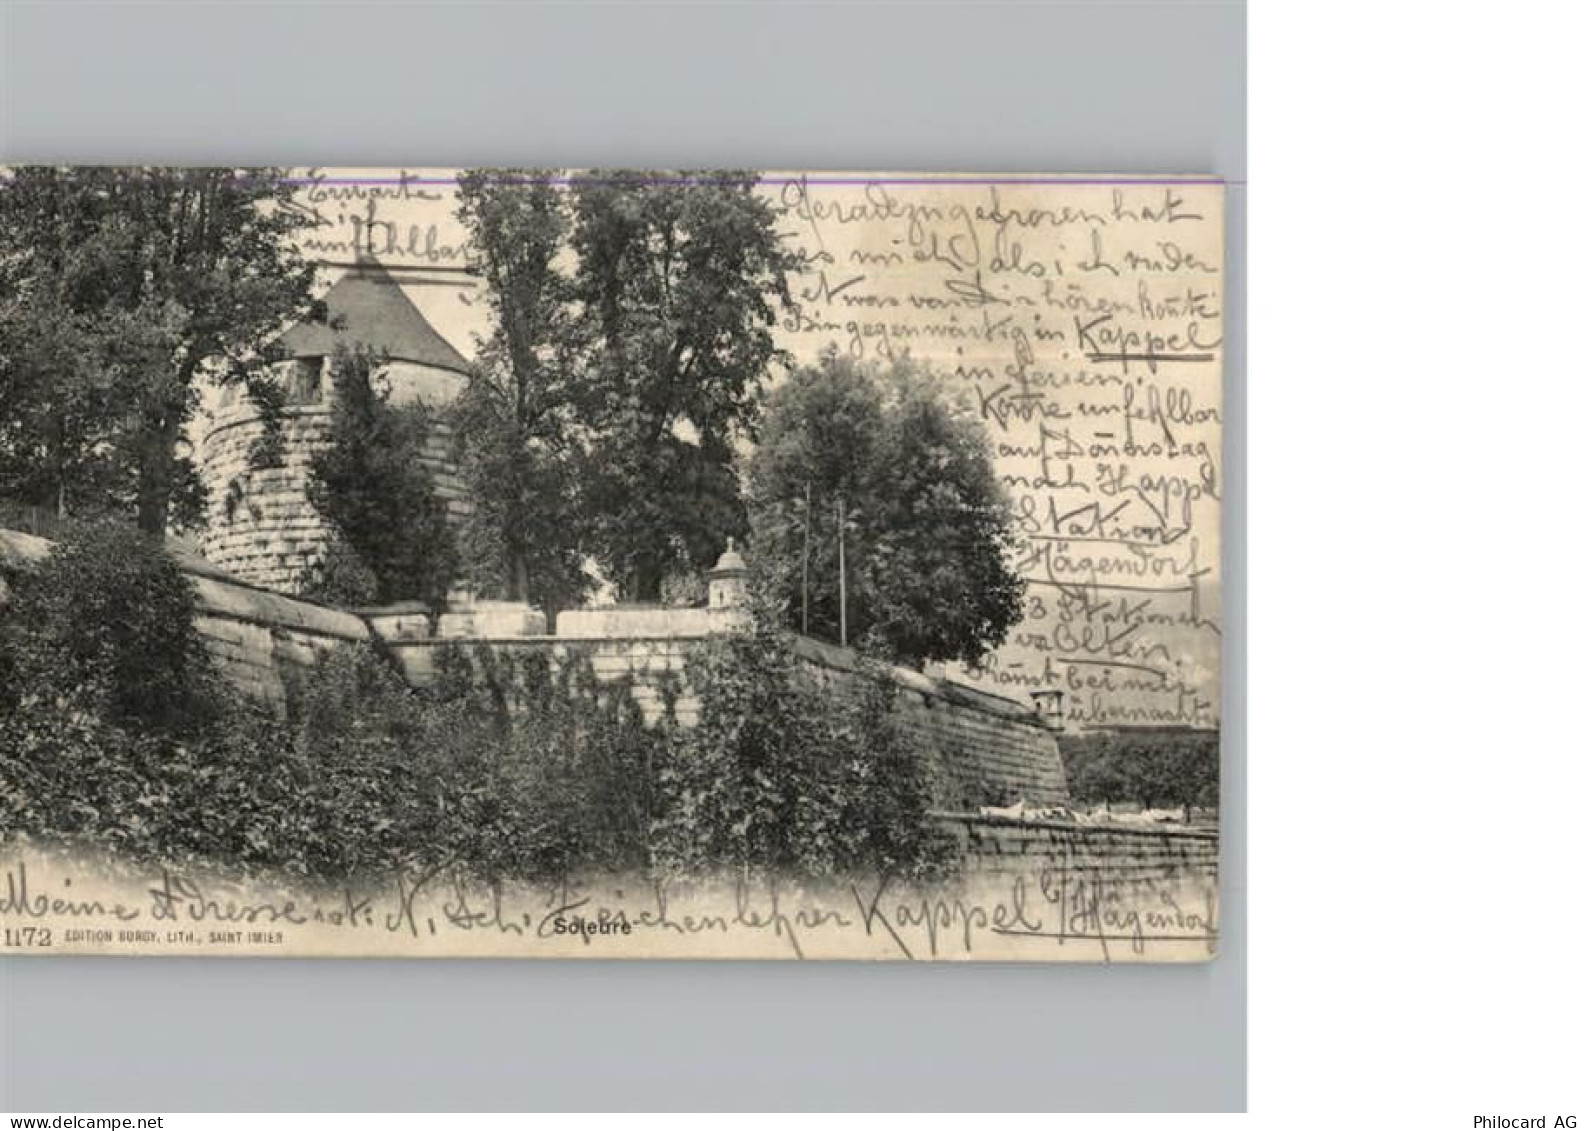 Erwarte
Dich
unfehlbar
Geradezu gefroren hat
es mich als ich wieder
etwas von Dir hören konnte
Bin gegenwärtig in Kappel
in Ferien.
Komme unfehlbar
auf Donnerstag
nach Kappel
Station
Hägendorf
3 Stationen
v. Olten.
Kannst bei mir
übernachten
Meine Adresse ist: N. Sch. Zeichenlehrer Kappel b/Hägendorf
1172 EDITION BURGY, LITH., SAINT IMIER
Soleure
Philocard AG